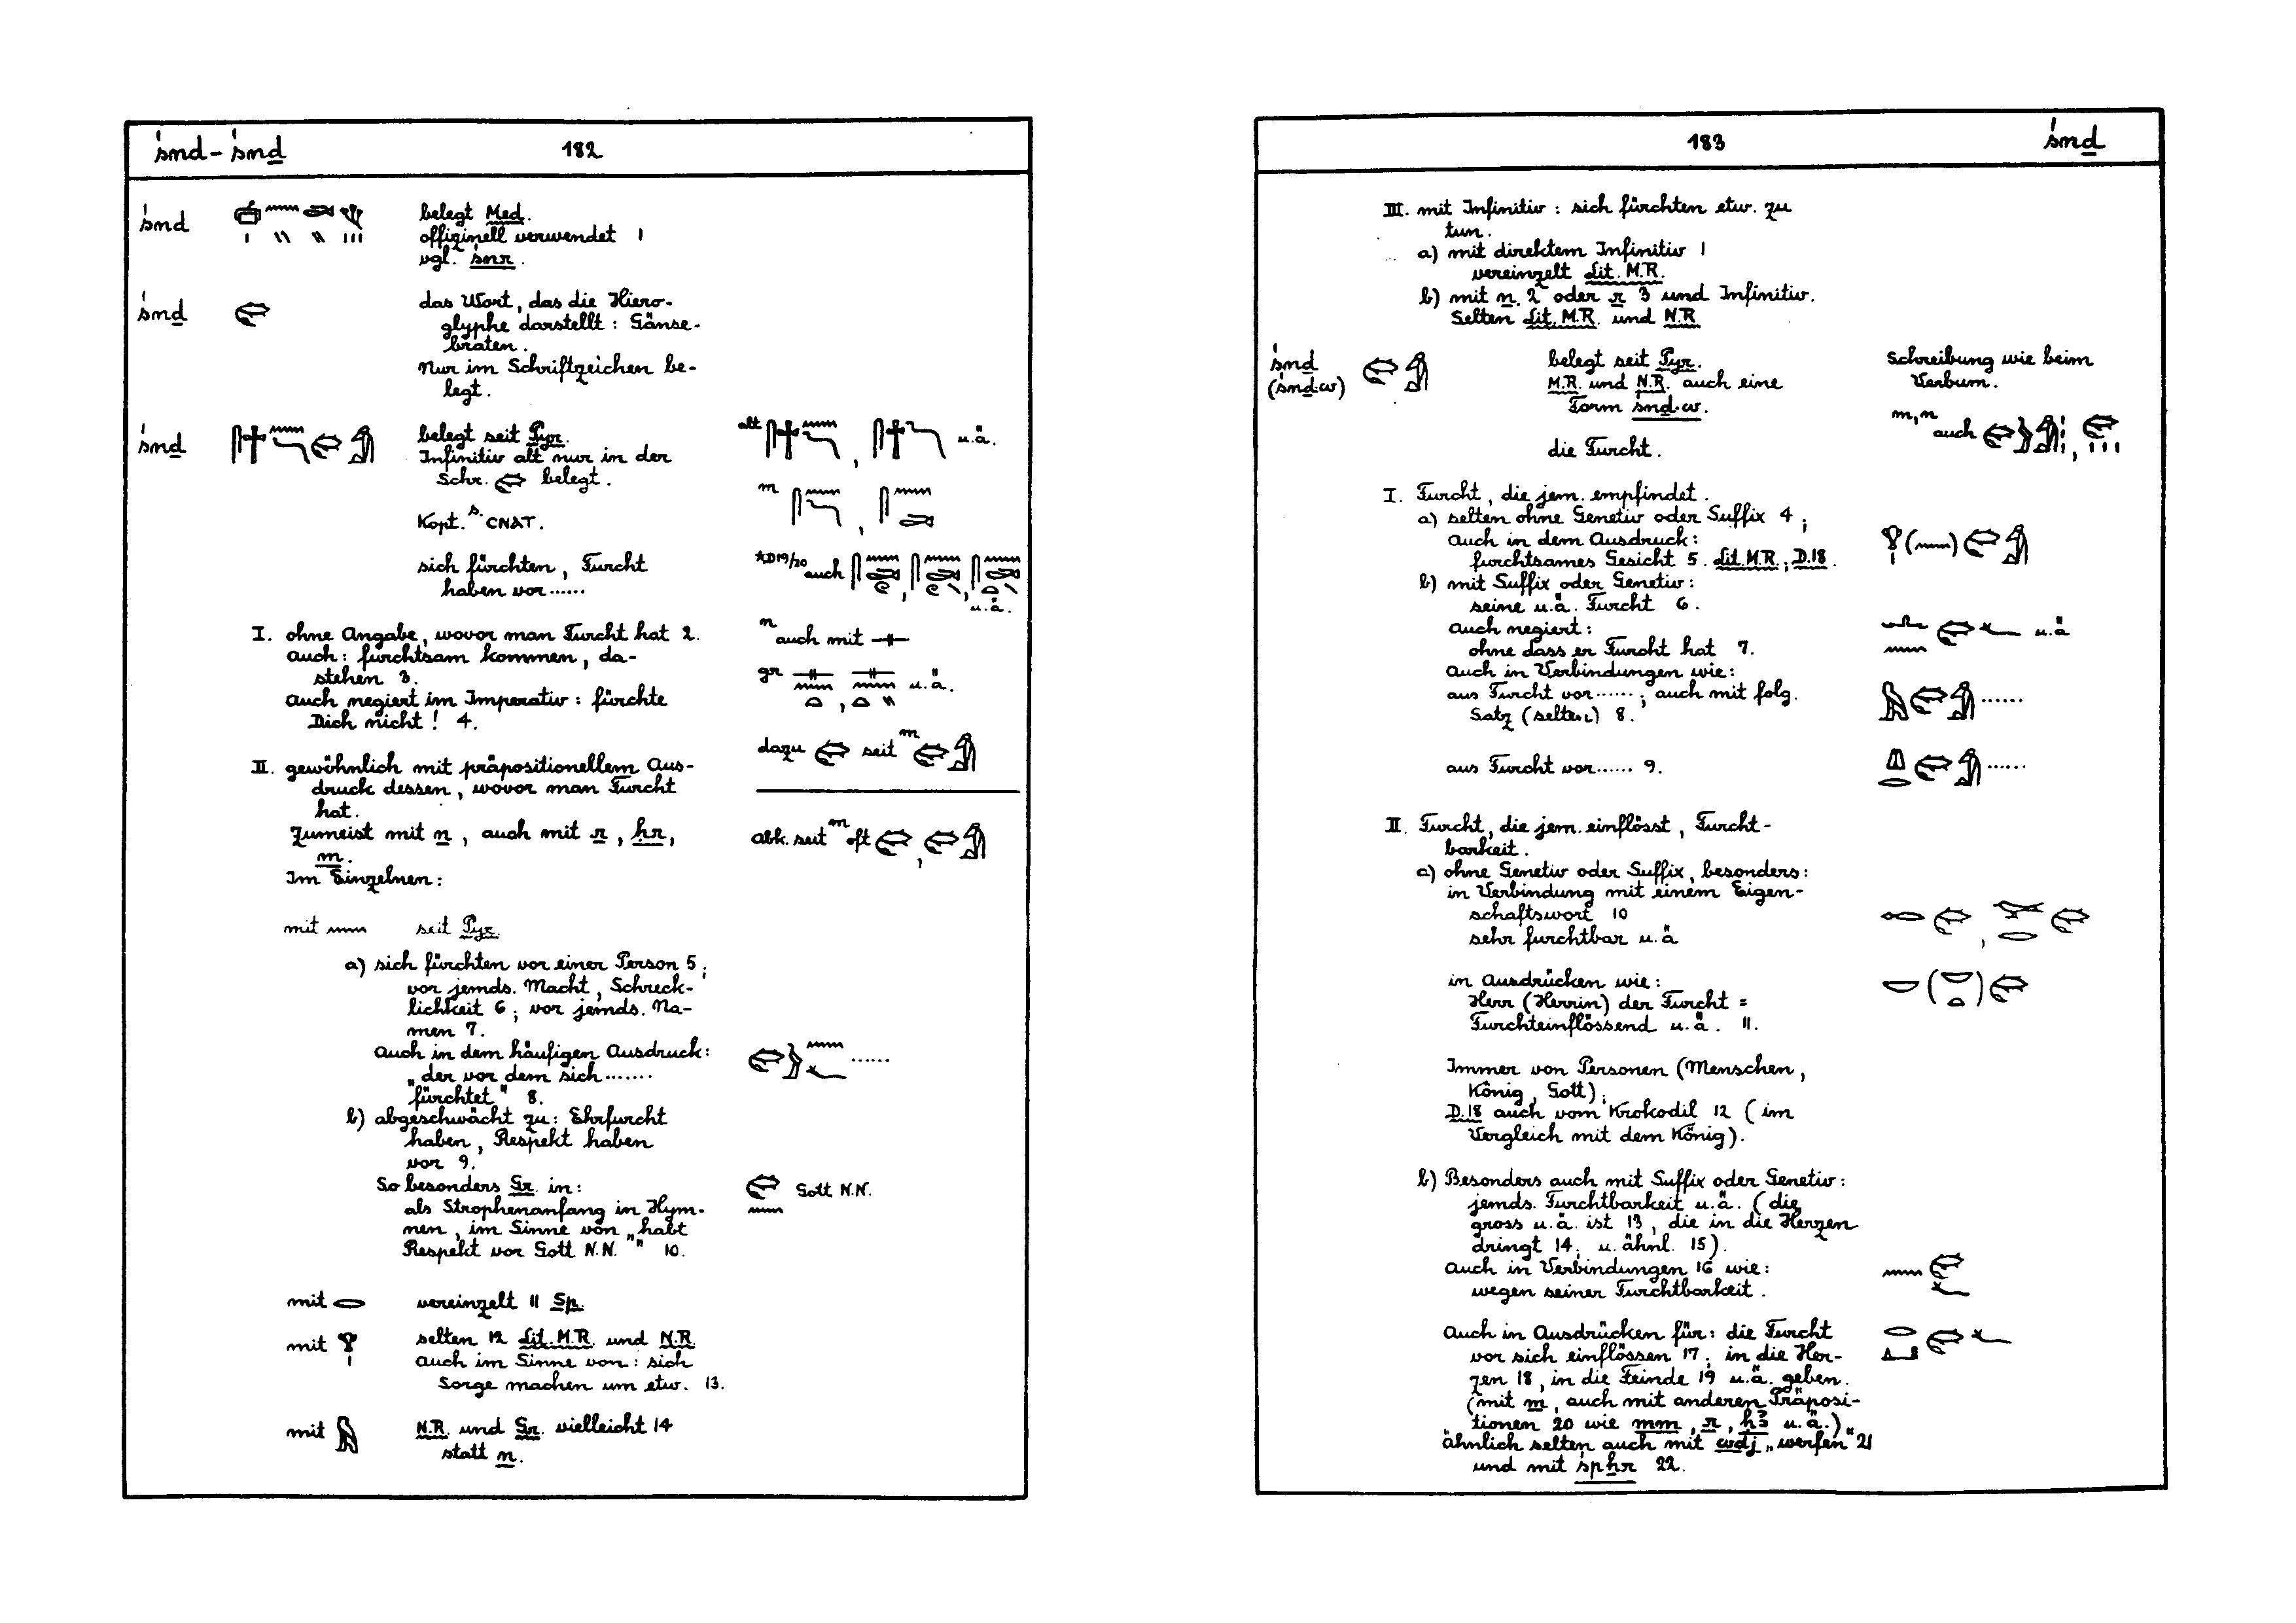 śnd - śnḏ 182
śnd
belegt Med.
offizinell verwendet 1
vgl. snr.
śnḏ
das Wort, das die Hiero-
glyphe darstellt: Gänse-
braten.
Nur im Schriftzeichen be-
legt.
śnḏ
belegt seit Pyr.
Infinitiv alt nur in der
Schr. belegt.
Kopt. s. CNAT.
sich fürchten, Furcht
haben vor ......
I. ohne Angabe, wovor man Furcht hat 2.
auch: furchtsam kommen, da-
stehen 3.
auch negiert im Imperativ: fürchte
Dich nicht! 4.
II. gewöhnlich mit präpositionellem Aus-
druck dessen, wovor man Furcht
hat.
Zumeist mit n, auch mit r, ḥr,
m.
Im Einzelnen:
mit seit Pyr.
a) sich fürchten vor einer Person 5;
vor jemds. Macht, Schreck-
lichkeit 6; vor jemds. Na-
men 7.
Auch in dem häufigen Ausdruck:
„der vor dem sich .......
fürchtet" 8.
b) abgeschwächt zu: Ehrfurcht
haben, Respekt haben
vor 9.
So besonders Gr. in:
als Strophenanfang in Hym-
nen, im Sinne von „habt
Respekt vor Gott N.N." 10.
mit vereinzelt 11 Sp.
mit selten 12 Lit. M.R. und N.R.
auch im Sinne von: sich
Sorge machen um etw. 13.
mit N.R. und Gr. vielleicht 14
statt n.
alt , u.ä.
m ,
*D19/20 auch , , u.ä.
n auch mit
gr , u.ä.
dazu seit m
Abk. seit m oft ,
......
Gott N.N.
183 śnḏ
III. mit Infinitiv: sich fürchten etw. zu
tun.
a) mit direktem Infinitiv 1
vereinzelt Lit. M.R.
b) mit n 2 oder r 3 und Infinitiv.
Selten Lit. M.R. und N.R.
śnḏ
(śnḏ.w)
belegt seit Pyr.
M.R. und N.R. auch eine
Form śnḏ.w.
die Furcht.
Schreibung wie beim
Verbum.
m, n
auch ,
I. Furcht, die jem. empfindet.
a) selten ohne Genetiv oder Suffix 4;
auch in dem Ausdruck:
furchtsames Gesicht 5. Lit. M.R.; D.18.
b) mit Suffix oder Genetiv:
seine u.ä. Furcht 6.
Auch negiert:
ohne dass er Furcht hat 7. u.ä
Auch in Verbindungen wie:
aus Furcht vor ......; auch mit folg. ......
Satz (selten) 8.
aus Furcht vor ...... 9. ......
II. Furcht, die jem. einflösst, Furcht-
barkeit.
a) ohne Genetiv oder Suffix, besonders:
in Verbindung mit einem Eigen-
schaftswort 10
sehr furchtbar u.ä
in Ausdrücken wie:
Herr (Herrin) der Furcht =
Furchteinflössend u.ä. 11.
Immer von Personen (Menschen,
König, Gott);
D.18 auch vom Krokodil 12 (im
Vergleich mit dem König).
b) Besonders auch mit Suffix oder Genetiv:
jemds. Furchtbarkeit u.ä. (die
gross u.ä. ist 13, die in die Herzen
dringt 14; u. ähnl. 15).
Auch in Verbindungen 16 wie:
wegen seiner Furchtbarkeit.
Auch in Ausdrücken für: die Furcht
vor sich einflössen 17; in die Her-
zen 18, in die Feinde 19 u.ä. geben.
(mit m, auch mit anderen Präposi-
tionen 20 wie mm, r, ḫ3 u.ä.)
ähnlich selten auch mit wdj „werfen" 21
und mit śpẖr 22.